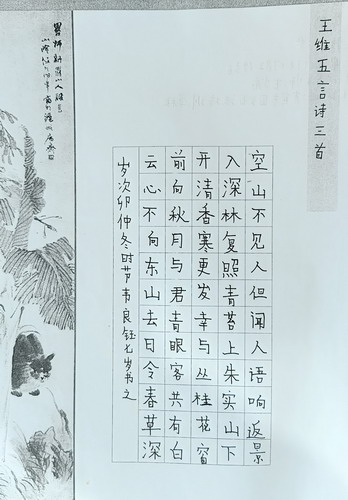 王维五言诗三首
空山不见人但闻人语响返景
入深林复照青苔上朱实山下
开清香寒更发幸与丛桂花窗
前向秋月与君青眼客共有白
云心不向东山去日令春草深
岁次卯仲冬时芦韦良钰七岁书之
新罗山人